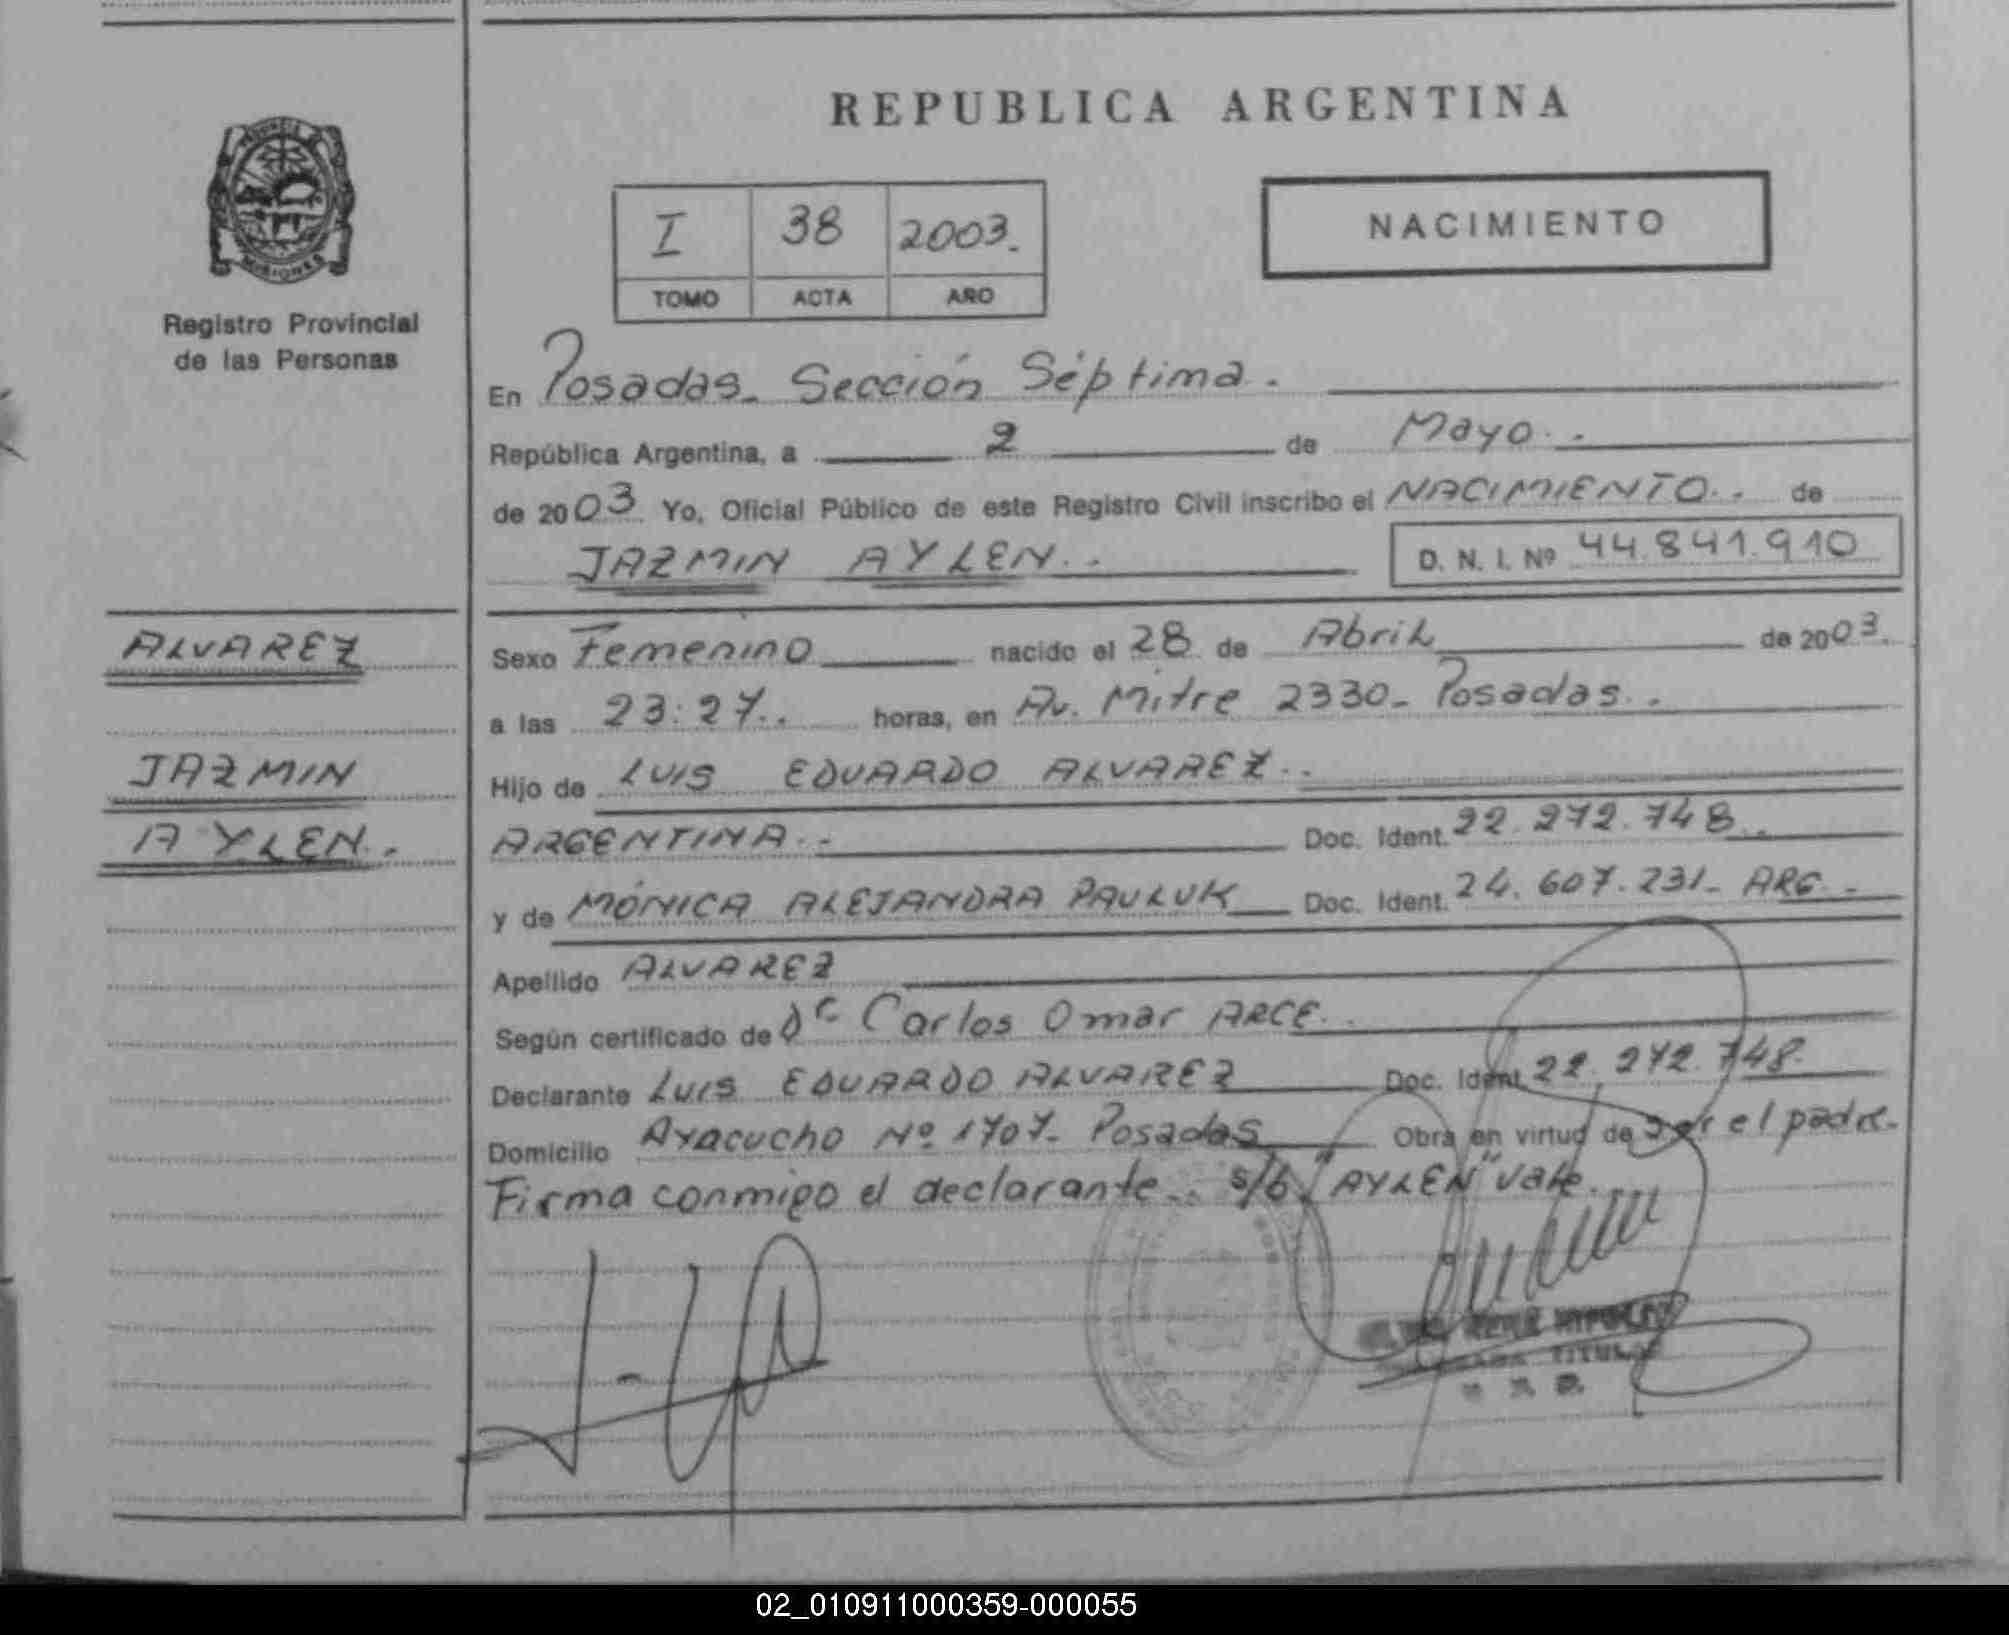 REPUBLICA ARGENTINA
MISIONES
Registro Provincial
de las Personas
I 38 2003.
TOMO ACTA AÑO
NACIMIENTO
En Posadas. Sección Séptima.
República Argentina, a 2 de Mayo.
de 2003 Yo, Oficial Público de este Registro Civil inscribo el NACIMIENTO.. de
JAZMIN AYLEN..
D. N. I. Nº 44.841.910
ALVAREZ
JAZMIN
AYLEN.
Sexo Femenino nacido el 28 de Abril de 2003.
a las 23:27.. horas, en Av. Mitre 2330- Posadas..
Hijo de LUIS EDUARDO ALVAREZ..
ARGENTINA.. Doc. Ident. 22.272.748..
y de MÓNICA ALEJANDRA PAULUK Doc. Ident. 24.607.231- ARG.-
Apellido ALVAREZ
Según certificado de Carlos Omar ARCE..
Declarante LUIS EDUARDO ALVAREZ Doc. Ident. 22.272.748.
Domicilio Ayacucho Nº 1707- Posadas Obra en virtud de ser el padre.
Firma conmigo el declarante.. s/b "AYLEN" vale.
TITULAR
02_010911000359-000055